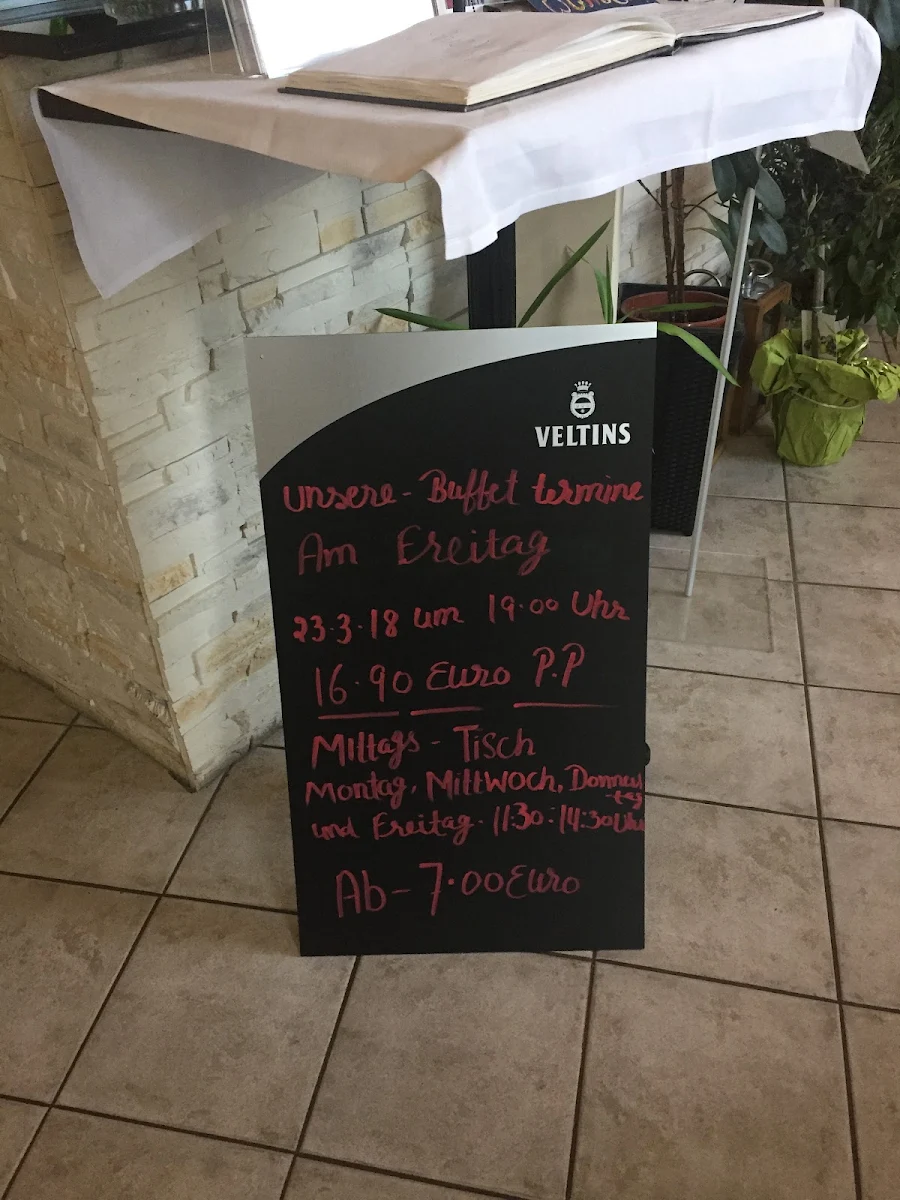 VELTINS
Unsere - Buffet termine
Am Freitag
23.3.18 um 19.00 Uhr
16.90 Euro P.P
Mittags - Tisch
Montag, Mittwoch, Donners
-tag
und Freitag. 11:30:14:30 Uhr
Ab - 7.00 Euro